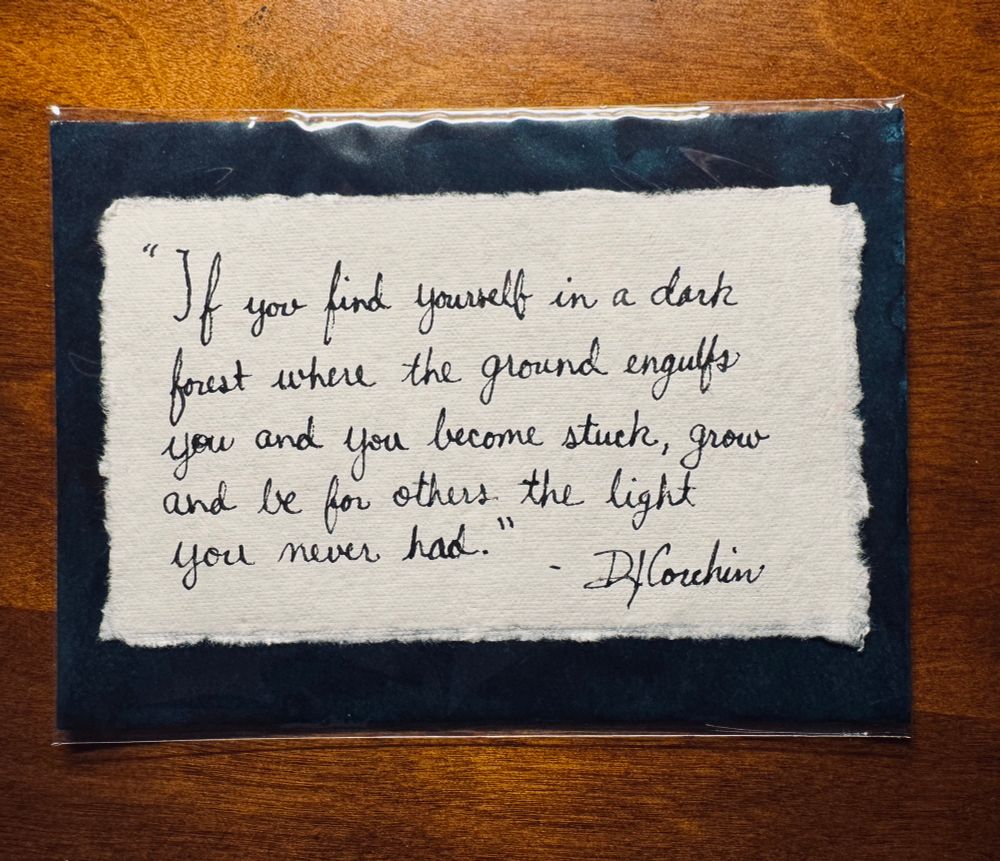 "If you find yourself in a dark
forest where the ground engulfs
you and you become stuck, grow
and be for others the light
you never had."
- DJ Corchin